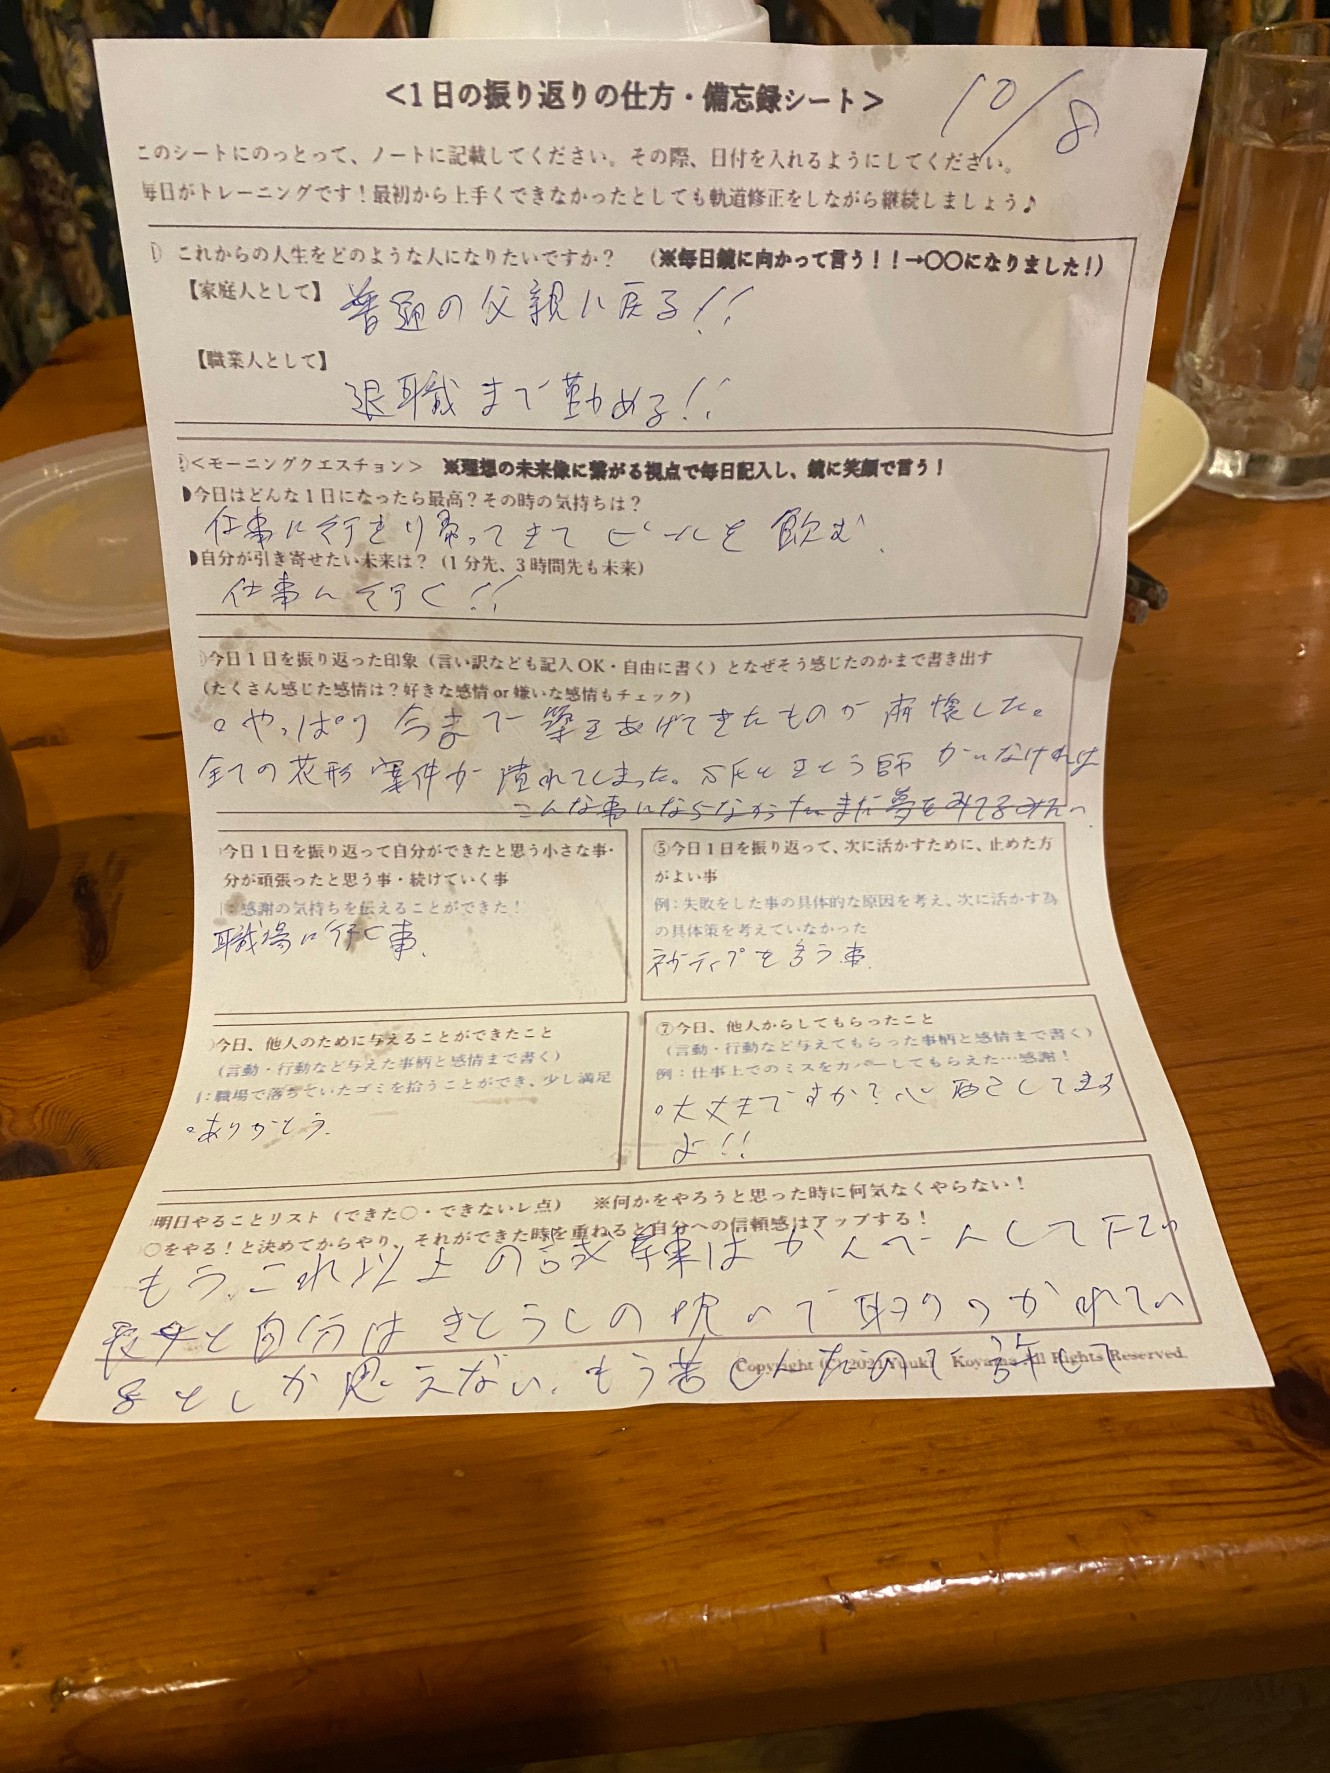 <1日の振り返りの仕方・備忘録シート>
10/8
このシートにのっとって、ノートに記載してください。その際、日付を入れるようにしてください。
毎日がトレーニングです！最初から上手くできなかったとしても軌道修正をしながら継続しましょう♪
これからの人生をどのような人になりたいですか？ (※毎日鏡に向かって言う！！→〇〇になりました！)
【家庭人として】
普通の父親に戻る!!
【職業人として】
退職まで勤める!!
<モーニングクエスチョン> ※理想の未来像に繋がる視点で毎日記入し、鏡に笑顔で言う！
今日はどんな1日になったら最高？その時の気持ちは？
仕事に行きり帰ってきてビールを飲む.
自分が引き寄せたい未来は？ (1分先、3時間先も未来)
仕事へ行く!!
今日1日を振り返った印象 (言い訳なども記入OK・自由に書く) となぜそう感じたのかまで書き出す
(たくさん感じた感情は？好きな感情or嫌いな感情もチェック)
○やっぱり今まで築きあげてきたものが崩壊した。
全ての花形案件が潰れてしまった。SKときとう師がいなければ
こんな事にならなかった
まだ夢をみてるみたい
今日1日を振り返って自分ができたと思う小さな事・
分が頑張ったと思う事・続けていく事
：感謝の気持ちを伝えることができた！
職場に行く事.
⑤今日1日を振り返って、次に活かすために、止めた方
がよい事
例：失敗をした事の具体的な原因を考え、次に活かす為
の具体策を考えていなかった
ネガティブを言う事.
今日、他人のために与えることができたこと
(言動・行動など与えた事柄と感情まで書く)
：職場で落ちていたゴミを拾うことができ、少し満足
○ありがとう.
⑦今日、他人からしてもらったこと
(言動・行動など与えてもらった事柄と感情まで書く)
例：仕事上でのミスをカバーしてもらえた…感謝！
○大丈夫ですか?心配してます
よ!!
明日やることリスト (できた〇・できないレ点) ※何かをやろうと思った時に何気なくやらない！
〇をやる！と決めてからやり、それができた時を重ねると自分への信頼感はアップする！
もう、これ以上の試練はかんべんして下さい
と自分はきとうしの呪いで取りつかれてい
るとしか思えない. もう苦しんだので許して
Copyright (C) 2021 Yuuki Koyama All Rights Reserved.